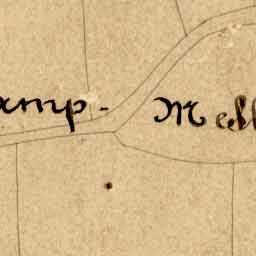 amp. Mell